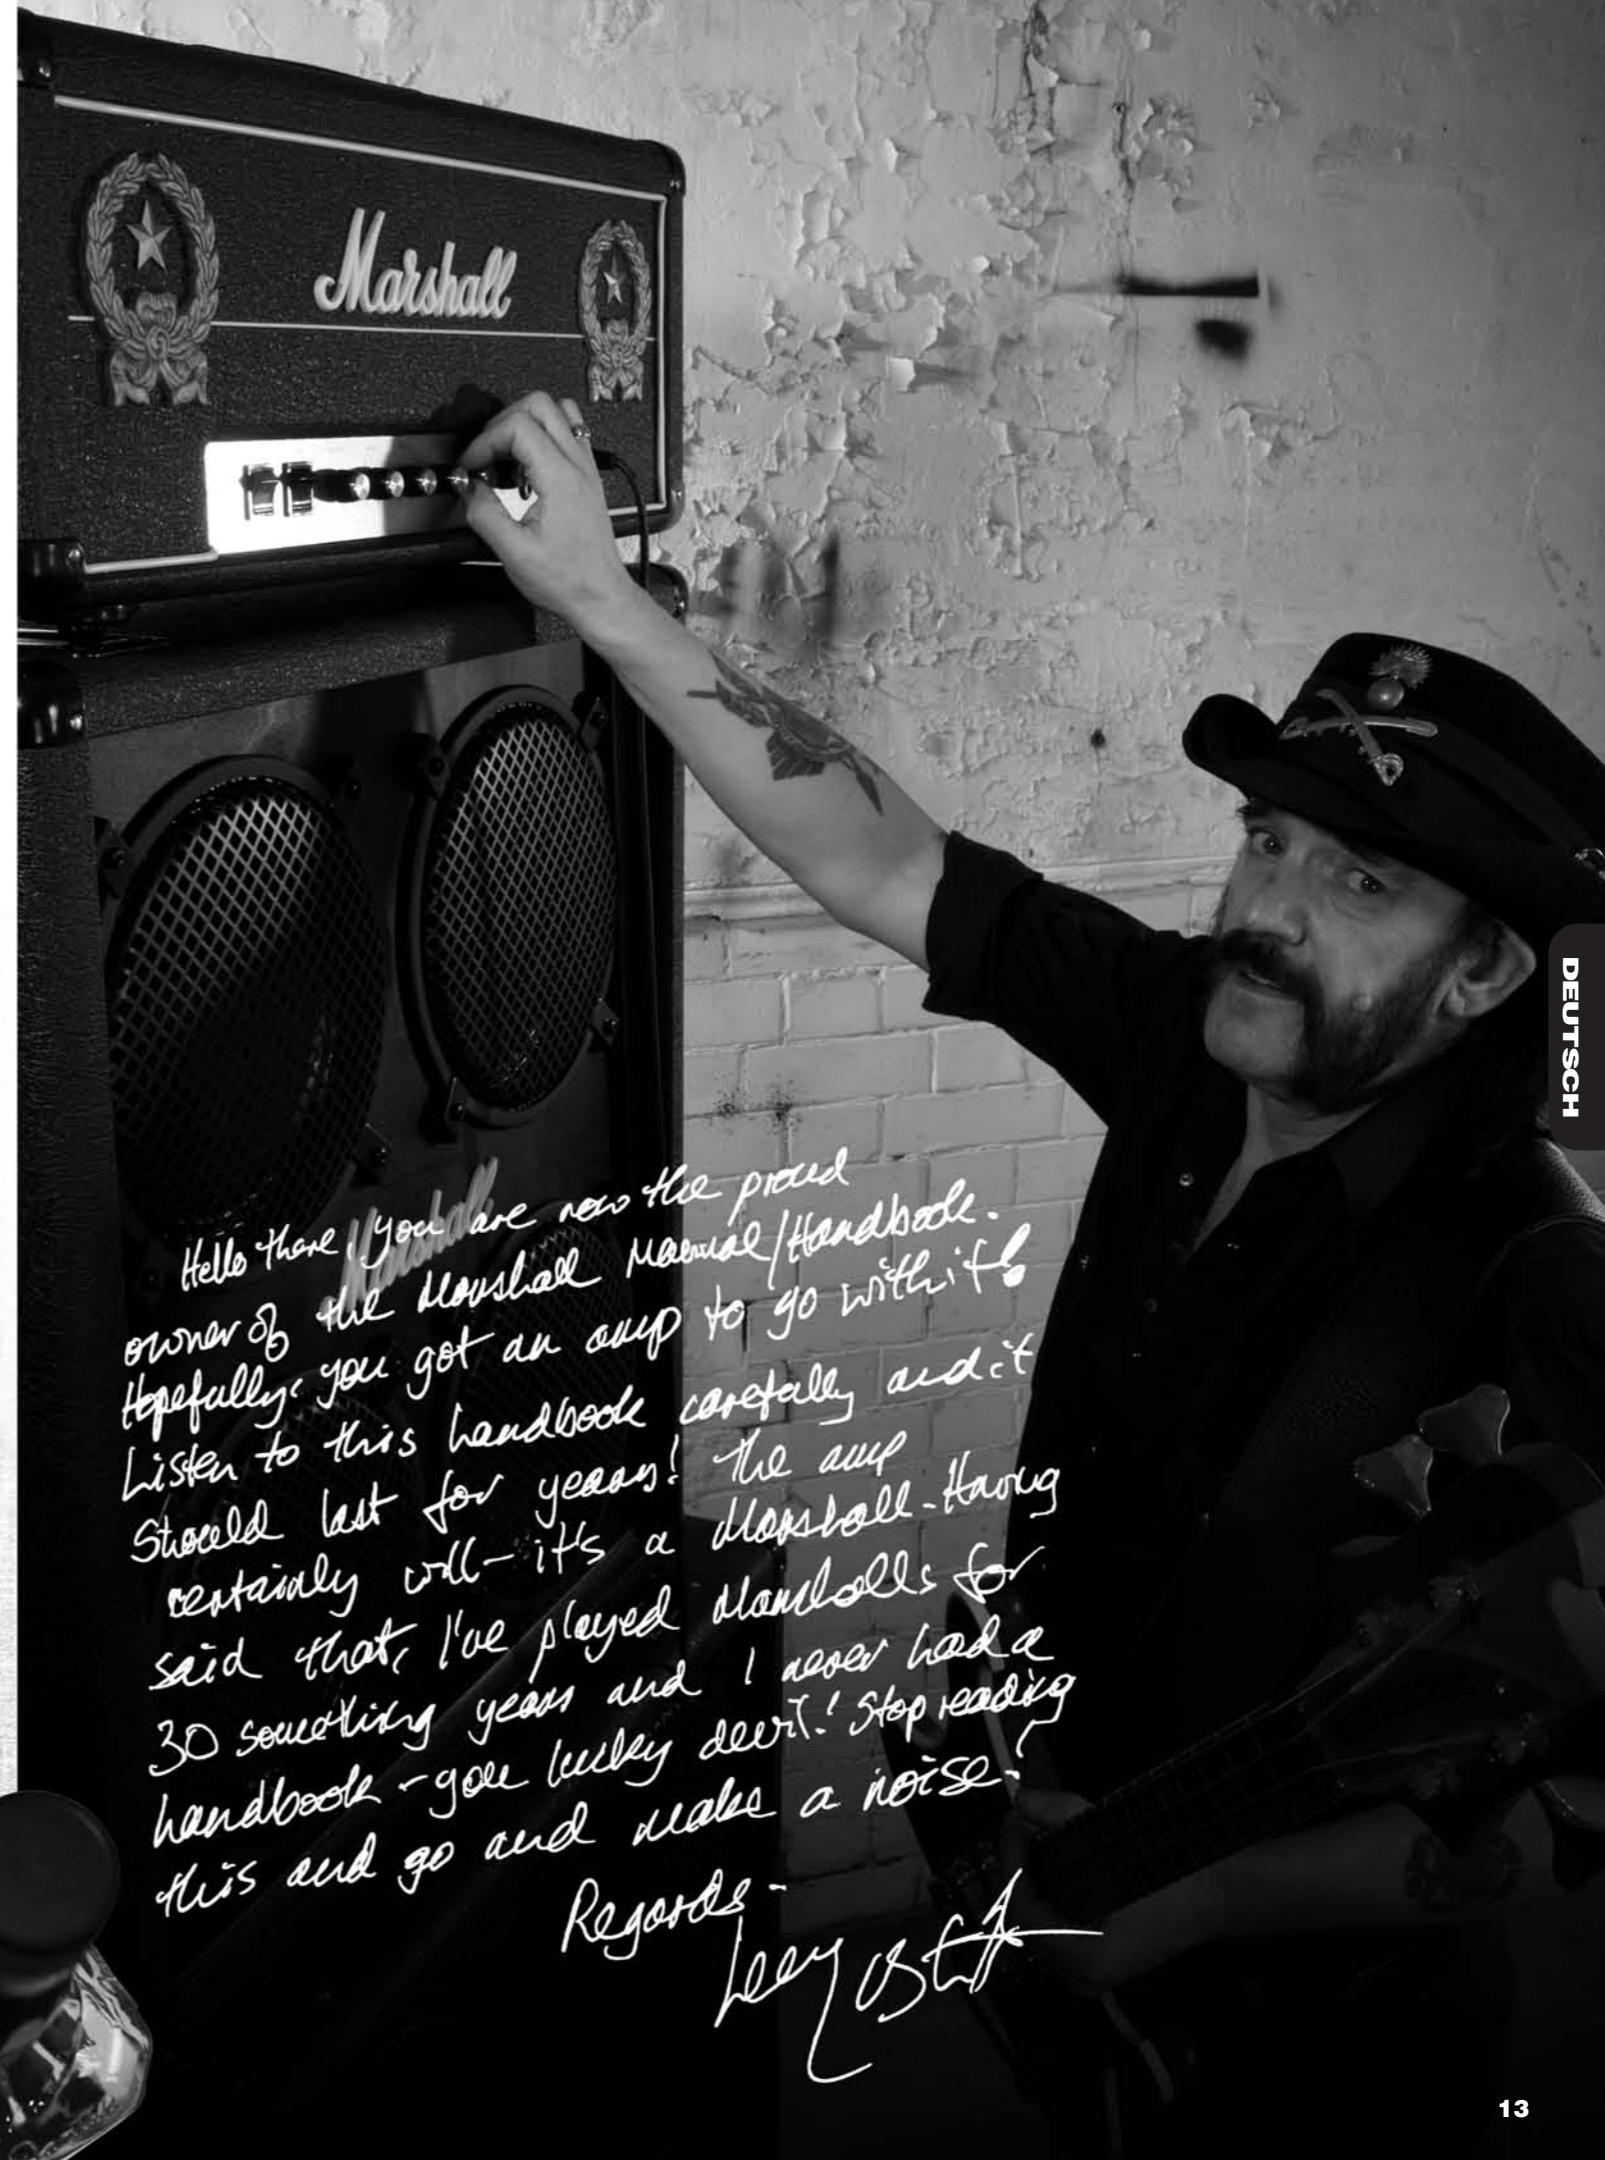 Marshall
DEUTSCH
Marshall
Hello there, you are now the proud
owner of the Marshall Manual/Handbook.
Hopefully, you got an amp to go with it!
Listen to this handbook carefully and it
should last for years! The amp
certainly will - it's a Marshall. Having
said that, I've played Marshalls for
30 something years and I never had a
handbook - you lucky devil! Stop reading
this and go and make a noise!
Regards -
13